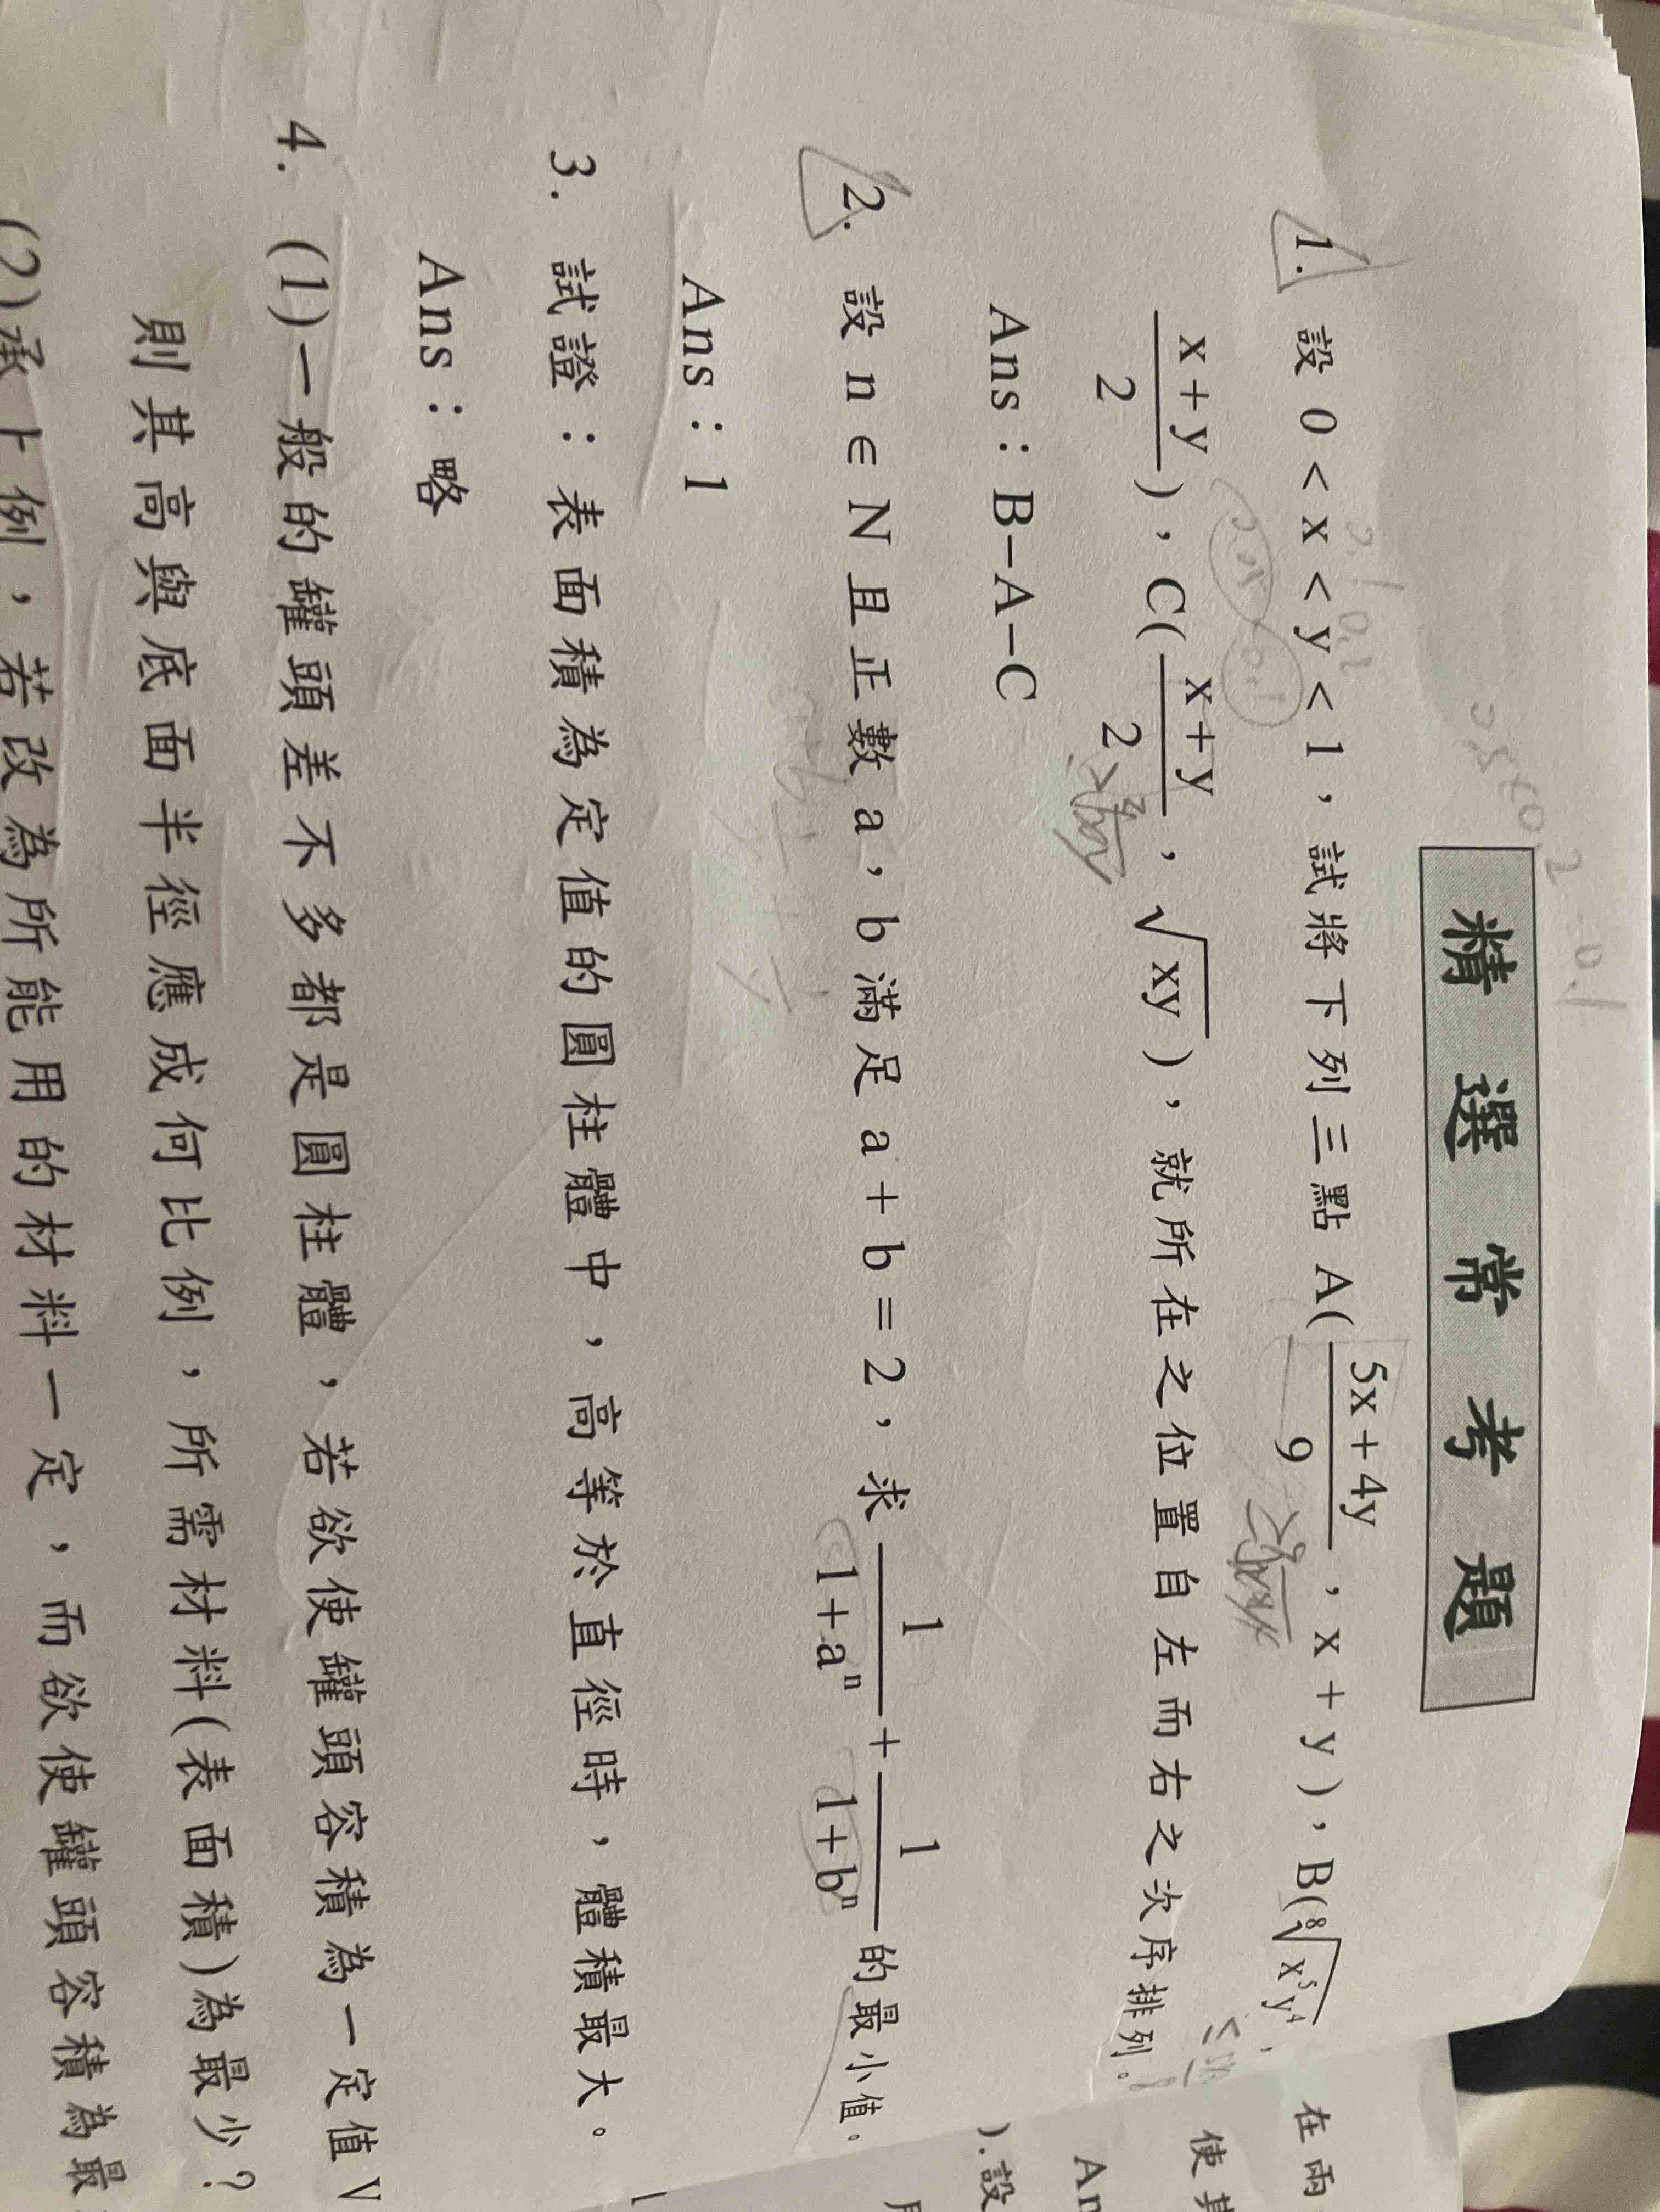 精選常考題
1. 設 0 < x < y < 1，試將下列三點 A(\frac{5x+4y}{9}，x+y)，B(\sqrt[8]{x^5y^4}，
\frac{x+y}{2})，C(\frac{x+y}{2}，\sqrt{xy})，就所在之位置自左而右之次序排列。
Ans：B−A−C
2. 設 n ∈ N 且正數 a，b 滿足 a + b = 2，求 \frac{1}{1+a^n} + \frac{1}{1+b^n} 的最小值。
Ans：1
3. 試證：表面積為定值的圓柱體中，高等於直徑時，體積最大。
Ans：略
4. (1)一般的罐頭差不多都是圓柱體，若欲使罐頭容積為一定值V
則其高與底面半徑應成何比例，所需材料(表面積)為最少？
(2)承上例，若改為所能用的材料一定，而欲使罐頭容積為最
在兩
使其
An
).設